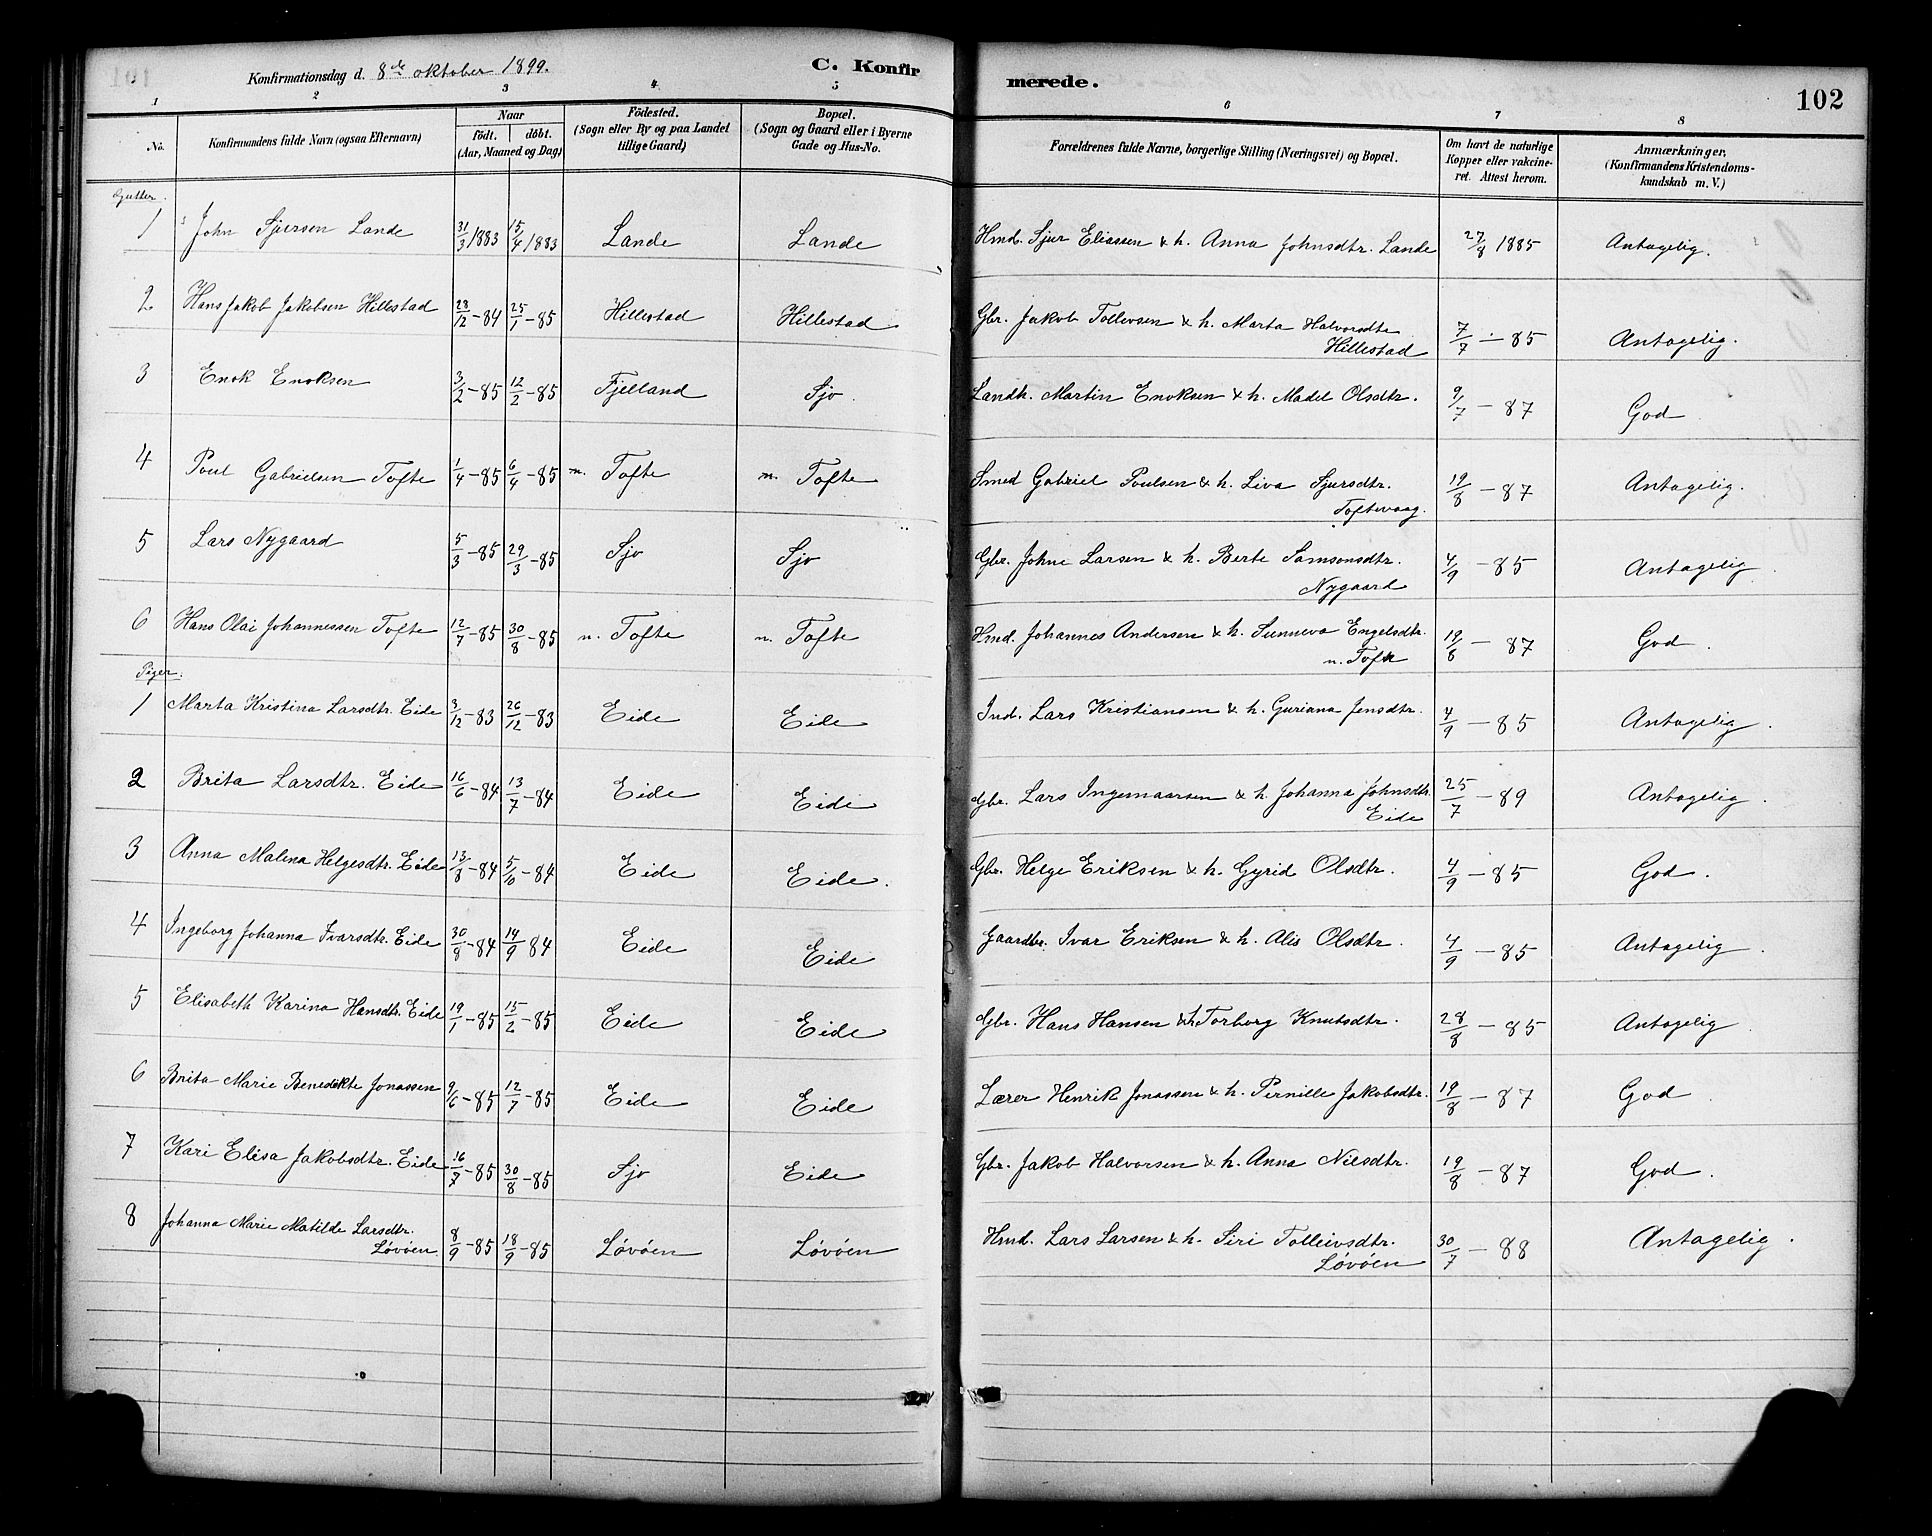 Konfirmationsdag d. 8de oktober 1899. C. Konfir merede. 102
1 2 3 4 5 6 7 8
No. Konfirmandens fulde Navn (ogsaa Efternavn) Naar födt. döbt. (Aar, Maaned og Dag) Födested. (Sogn eller By og paa Landet tillige Gaard) Bopæl. (Sogn og Gaard eller i Byerne Gade og Hus-No. Forældrenes fulde Navne, borgerlige Stilling (Næringsvei) og Bopæl. Om havt de naturlige Kopper eller vakcineret. Attest herom. Anmærkninger, (Konfirmandens Kristendomskundskab m. V.)
Gutter.
1 John Sjursen Lande 31/3 1883 15/4 1883 Lande Lande Hmd. Sjur Eliassen & h. Anna Johnsdtr. Lande 27/8 1885 Antagelig.
2 Hans Jakob Jakobsen Hillestad 28/12-84 25/1-85 Hillestad Hillestad Gbr. Jakob Tollevsen & h. Marta Halvorsdtr Hillestad 7/7-85 Antagelig.
3 Enok Enoksen 3/2-85 12/2-85 Fjelland Sjo Landh. Martin Enoksen & h. Madel Olsdtr. 9/7-87 God
4 Poul Gabrielsen Tofte 1/4-85 6/4-85 n. Tofte n. Tofte Smed Gabriel Poulsen & h. Liva Sjursdtr. Toftevaag. 19/8-87 Antagelig.
5 Lars Nygaard 5/3-85 29/3-85 Sjo Sjo Gbr. Johne Larsen & h. Berte Samsonsdtr. Nygaard 4/9-85 Antagelig
6 Hans Olai Johannessen Tofte 12/7-85 30/8-85 n. Tofte n. Tofte Hmd. Johannes Andersen & h. Sunneva Engelsdtr. n. Tofte 19/8-87 God.
Piger.
1 Marta Kristina Larsdtr. Eide 3/12-83 26/12-83 Eide Eide Ind. Lars Kristiansen & h. Guriana Jensdtr. 4/9-85 Antagelig.
2 Brita Larsdtr. Eide 16/6-84 13/7-84 Eide Eide Gbr. Lars Ingemaarsen & h. Johanna Johnsdtr. Eide 25/7-89 Antagelig.
3 Anna Malena Helgesdtr. Eide 13/8-84 5/10-84 Eide Eide. Gbr. Helge Eriksen & h. Gyrid Olsdtr. 4/9-85 God.
4 Ingeborg Johanna Ivarsdtr. Eide 30/8-84 14/9 84 Eide Eide Gaardbr. Ivar Eriksen & h. Alis Olsdtr. 4/9-85 Antagelig.
5 Elisabeth Karina Hansdtr. Eide 19/1-85 15/2-85 Eide Eide Gbr. Hans Hansen & h. Torborg Knutsdtr. 28/8-85 Antagelig
6 Brita Marie Benedikte Jonassen 9/6-85 12/7-85 Eide Eide Lærer Henrik Jonassen & h. Pernille Jakobsdtr. 19/8-87 God.
7 Kari Elisa Jakobsdtr. Eide 16/7-85 30/8-85 Sjo Eide Gbr. Jakob Halvorsen & h. Anna Nilsdtr. 19/8-87 God.
8 Johanna Marie Matilde Larsdtr. Løvöen 8/9-85 18/9-85 Løvöen Løvöen Hmd. Lars Larsen & h. Siri Tolleivsdtr. Løvöen 30/7-88 Antagelig.